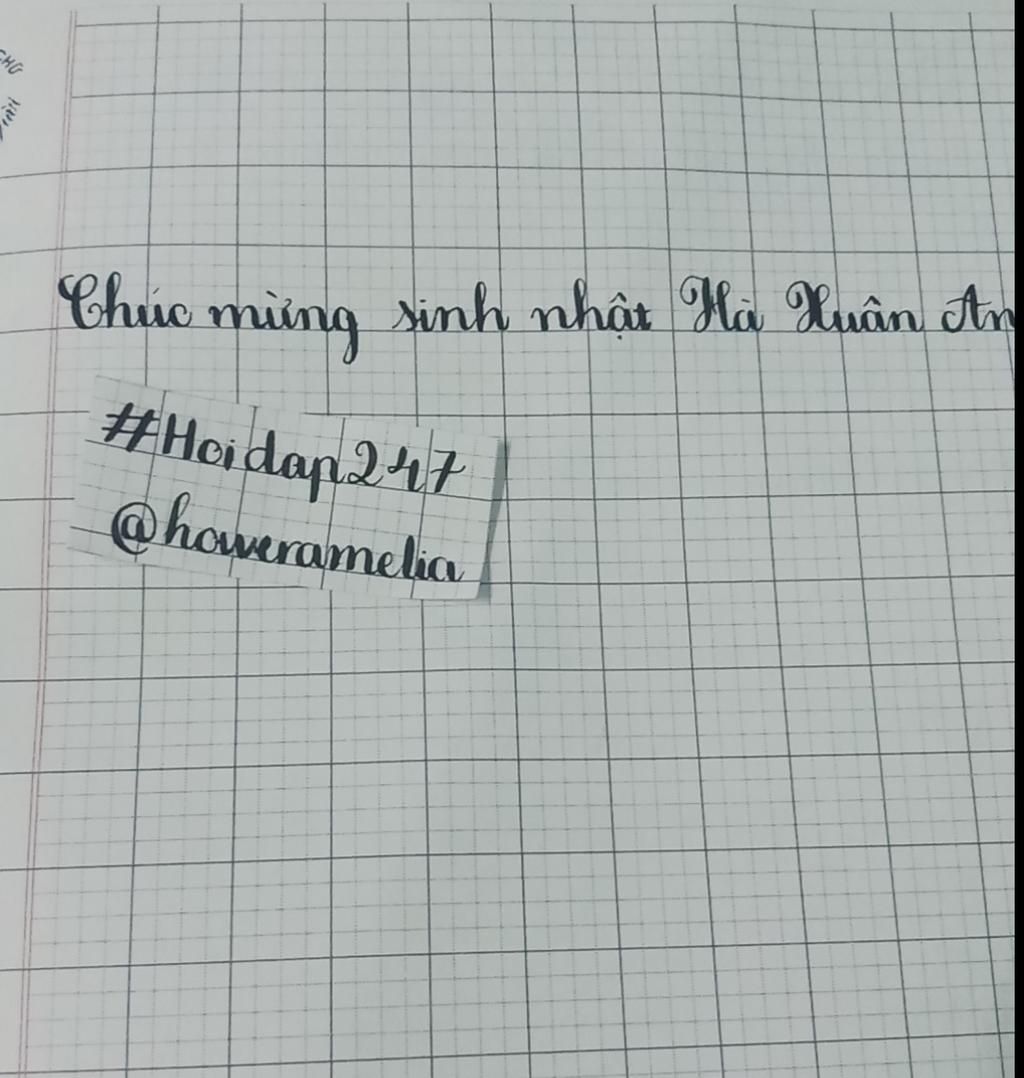 Chúc mừng sinh nhật Hà Xuân An
#Hoidap247
@howeramelia